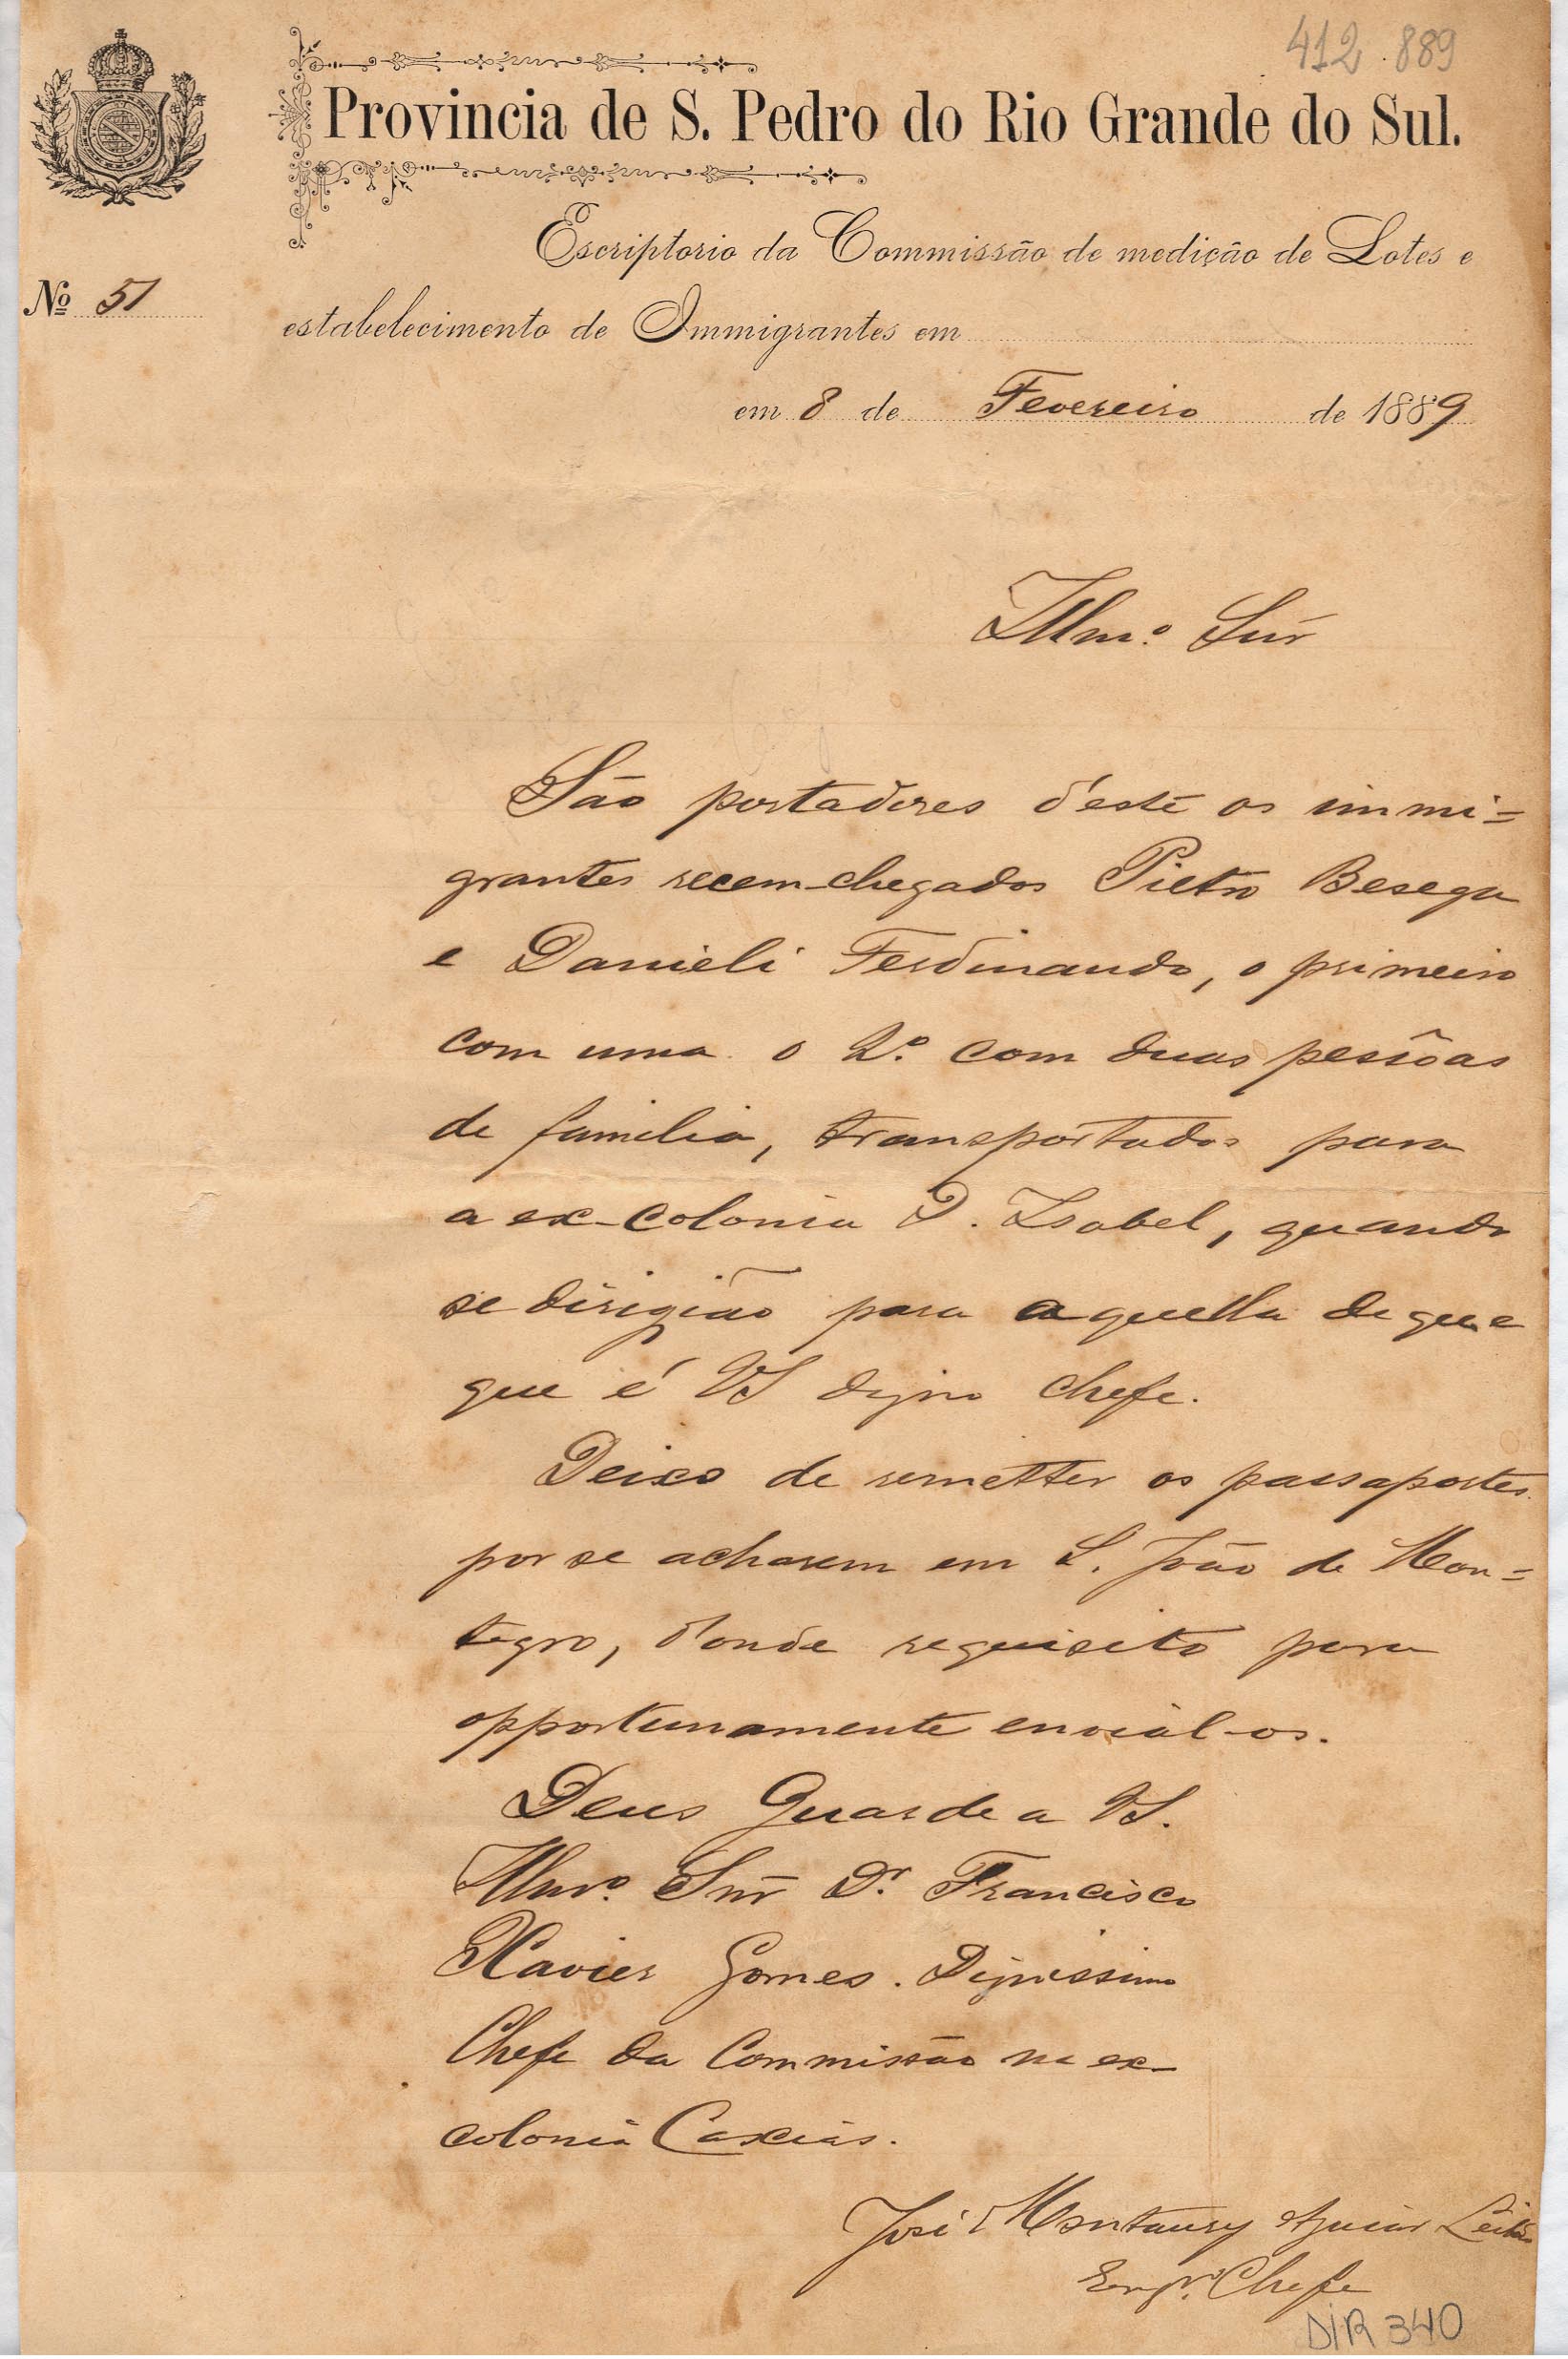 412.889
Provincia de S. Pedro do Rio Grande do Sul.
Escriptorio da Commissão de medição de Lotes e
Nº 51
estabelecimento de Immigrantes em
em 8 de Fevereiro de 1889
Illmº Snr
São portadores d'este os immi=
grantes recem-chegados Pietro Besega
e Danieli Ferdinando, o primeiro
com uma o 2º com duas pessôas
de familia, transportados para
a ex-colonia D. Isabel, quando
se dirigião para aquella de que
que é VS digno chefe.
Deixo de remetter os passaportes
por se acharem em S. João de Mon=
tegro, d'onde requisito para
opportunamente envial-os.
Deus Guarde a VS.
Illmº Snr Dr Francisco
Xavier Gomes. Dignissimo
Chefe da Commissão na ex-
colonia Caxias.
José Montaury Aguiar Leitão
Engrº Chefe
DIR 340